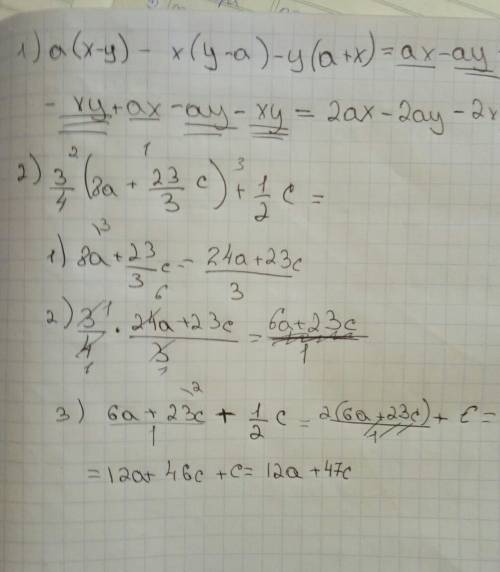 1) a(x-y) - x(y-a) - y(a+x) = ax - ay
- xy + ax - ay - xy = 2ax - 2ay - 2x
2) 3/4 (8a + 23/3 c) + 1/2 c =
1) 8a + 23/3 c = (24a + 23c)/3
2) 3/4 · (24a + 23c)/3 = (6a + 23c)/1
3) (6a + 23c)/1 + 1/2 c = 2(6a + 23c)/1 + c =
= 12a + 46c + c = 12a + 47c